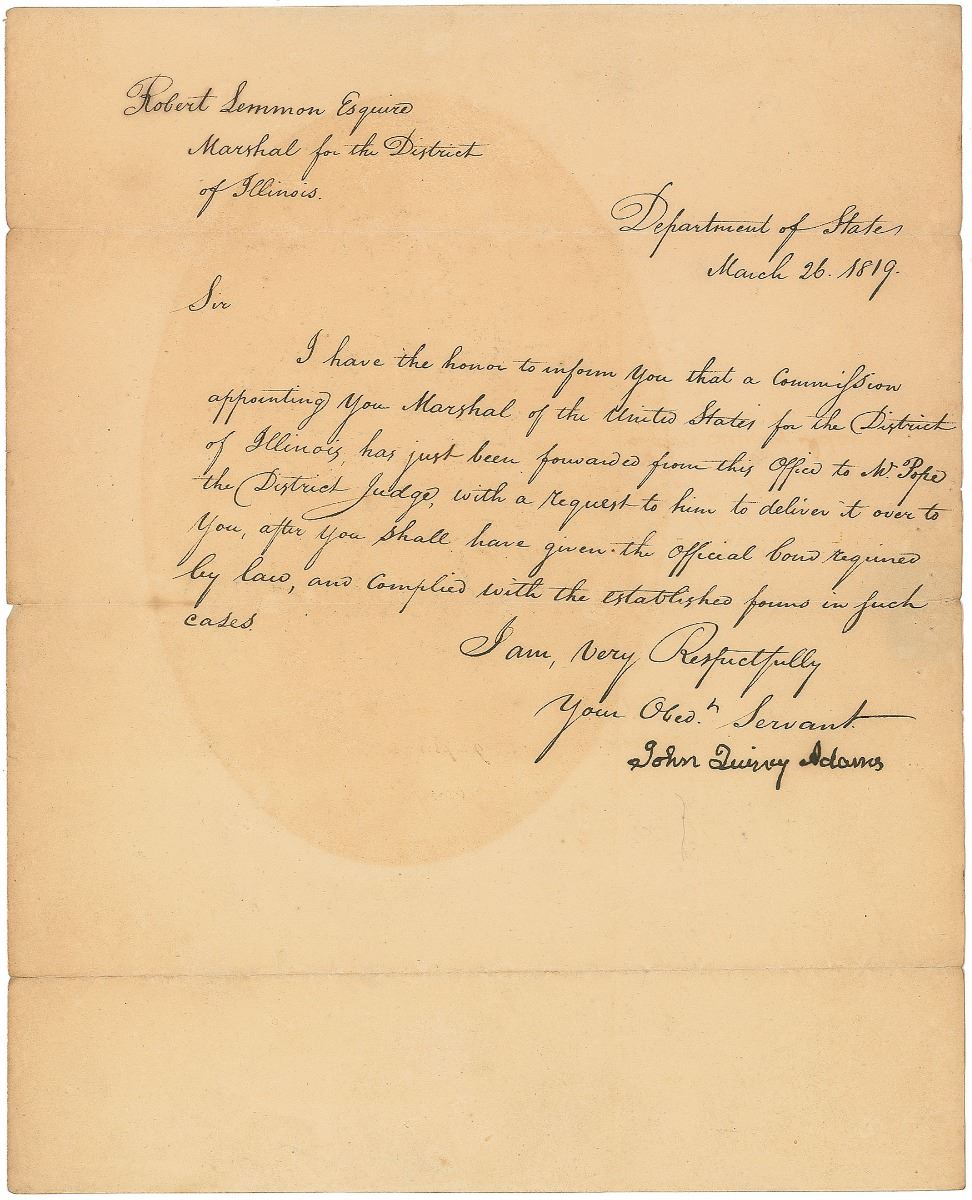 Robert Lemmon Esquire
Marshal for the District
of Illinois.
Department of State,
March 26. 1819.
Sir
I have the honor to inform you that a Commission
appointing you Marshal of the United States for the District
of Illinois, has just been forwarded from this Office to Mr. Pope
the District Judge, with a request to him to deliver it over to
you, after you shall have given the Official bond required
by law, and complied with the established forms in such
cases.
I am, very Respectfully
Your Obed.t Servant.
John Quincy Adams